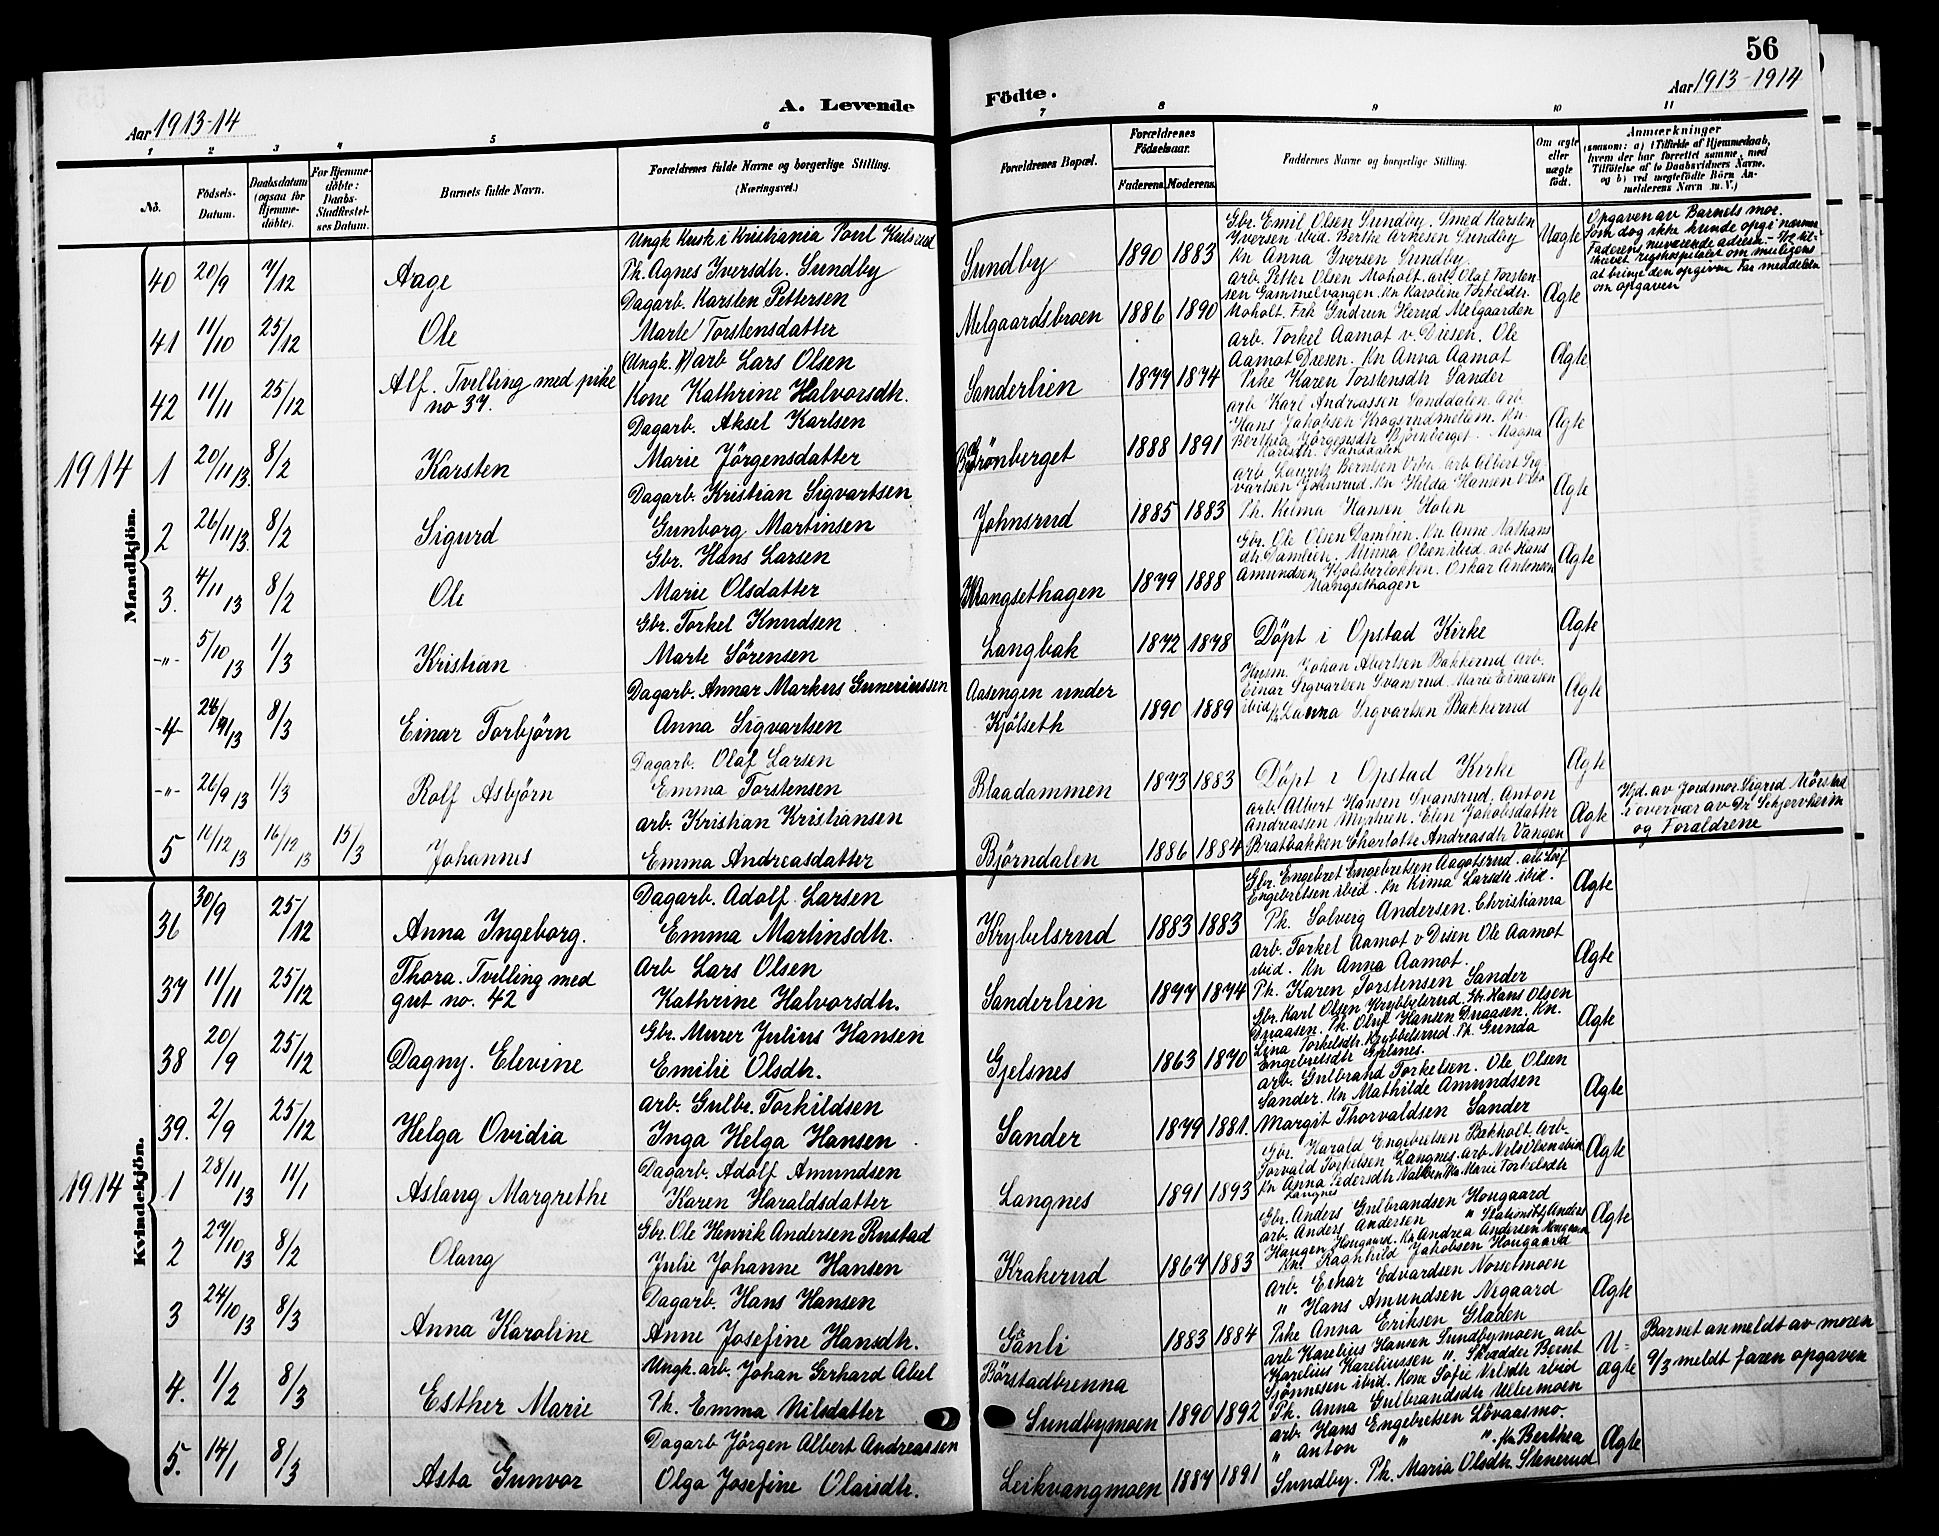 56
Aar 1913-14
A. Levende
Födte.
Aar 1913-1914
1 2 3 4 5 6 7 8 9 10 11
No.
Födsels-Datum.
Daabsdatum (ogsaa for Hjemme-döbte).
For Hjemme-döbte: Daabs-Stadfæstel-ses Datum.
Barnets fulde Navn.
Forældrenes fulde Navne og borgerlige Stilling.
(Næringsvei.)
Forældrenes Bopæl.
Forældrenes Födselsaar.
Faderens. Moderens.
Faddernes Navne og borgerlige Stilling.
Om ægte eller uægte födt.
Anmærkninger
(saasom: a) i Tilfælde af Hjemmedaab, hvem der har forrettet samme, med Tilföielse af to Daabsvidners Navne, og b) ved uægtefödte Börn Anmelderens Navn m. V.)
Mandkjön.
40 20/9 7/12 Aage
Ungk Kusk i Kristiania Paul Kulsrud
Pk. Agnes Iversdtr. Sundby
Sundby 1890 1883
Gbr. Emil Olsen Sundby. Smed Karsten
Iversen ibid. Berthe Arnesen Sundby
Kn Anna Iversen Sundby.
Uægte
Opgaven av Barnets mor
som dog ikke kunde opgi nærmere
Faderens nuværende adresse.
om opgaven
41 11/10 25/12 Ole
Dagarb. Karsten Pettersen
Marte Torstensdatter
Melgaardsbroen 1886 1890
arb. Petter Olsen Moholt. arb. Olaf Torsten-
sen Gammelvangen. Kn Karoline Torkelsdtr.
Moholt. Frk Gudrun Herud Melgaarden
Ægte
42 11/11 25/12 Alf. Tvilling med pike
no 37.
(Ungk.) arb Lars Olsen
Kone Kathrine Halvorsdtr.
Sanderlien 1877 1874
arb. Torkel Aamot v. Disen. Ole
Aamot Disen. Kn Anna Aamot
Pike Karen Torstensdtr Sander
Ægte
1914
1 20/11 13. 8/2 Karsten
Dagarb. Aksel Karlsen
Marie Jörgensdatter
Björönberget 1888 1891
arb Karl Andreassen Sanddalen. arb.
Hans Jakobsen Kragsrudmellem. Kn.
Berthea Jörgensdtr Bjönberget. Magna
Karlsdtr. Sanddalen
Ægte
2 26/11 13. 8/2 Sigurd
Dagarb. Kristian Sigvartsen
Gunborg Martinsen
Johnsrud 1885 1883
arb Lauritz Berntsen. arb Albert Sig-
vartsen Johnsrud. Kn Hilda Hansen
Pk. Helma Hansen Holen
Ægte
3. 4/11 13 8/2 Ole
Gbr. Hans Larsen
Marie Olsdatter
Mangsethagen 1879 1888
Gbr. Ole Olsen Damlien. Kn. Anne Nathans
dtr. Damlien. Minna Olsen ibid. arb. Hans
Amundsen Kjolsberlökken. Oskar Antonsen
Mangsethagen
Ægte
-"- 5/10 13 1/3 Kristian
Gbr. Torkel Knudsen
Marte Sörensen
Langbak 1872 1878
Döpt i Opstad Kirke
Ægte
-4- 24/11 13 8/3 Einar Torbjörn
Dagarb. Annar Markus Guneriussen
Anna Sigvartsen
Aasengen under
Kjölseth
1890 1889
Husm. Johan Abertsen Bakkerud arb.
Einar Sigvartsen Svansrud. Marie Einarsen
ibid Pk Laura Sigvartsen Bakkerud
Ægte
-"- 26/9 13 1/3 Rolf Asbjörn
Dagarb. Olaf Larsen
Emma Torstensen
Blaadammen 1873 1883
Döpt i Opstad Kirke
Ægte
5 11/12 13 16/12 13 15/3 Johannes
arb. Kristian Kristiansen
Emma Andreasdatter
Björndalen 1886 1884
arb. Albert Hansen Svansrud. Anton
Andreassen Myhren. Elen Jakobsdatter
Bratbakken Charlotte Andreasdtr Vangen
Ægte
Hjd. av Jordmor Sigrid Mörstad
i overvær av Dr. Schjervheim
og Forældrene
Kvindekjön.
36 30/9 25/12 Anna Ingeborg.
Dagarb. Adolf Larsen
Emma Martinsdtr.
Krybelsrud 1883 1883
Gbr. Engebret Engebretsen Aagotsrud. arb. Leif
Engebretsen ibid. Kn Kima Larsdtr ibid.
Pk. Solverg Andersen. Christiania
Ægte
37 11/11 25/12 Thora. Tvilling med
gut no. 42
Arb Lars Olsen
Kathrine Halvorsdtr.
Sanderlien 1877 1874
arb. Torkel Aamot v Disen Ole Aamot
ibid. Kn Anna Aamot.
Pk. Karen Torstensen Sander
Ægte
38 20/9 25/12 Dagny. Elevine
Gbr. Murer Julius Hansen
Emilie Olsdtr.
Gjelsnes 1863 1870
Gbr. Karl Olsen Krybbelsrud. Gbr. Hans Olsen
Duaasen. Pk. Oluf Hansen Duaasen. Kn.
Lina Torkelsdtr. Krybbelsrud. Pk. Gunda
Engebretsdtr Gjelsnes.
Ægte
39. 2/9 25/12 Helga Ovidia
arb. Gulbr. Torkildsen
Inga Helga Hansen
Sander 1879 1881.
arb. Gulbrand Torkelsen. Ole Olsen
Sander. Kn Mathilde Amundsen
Margit Thorvaldsen Sander
Ægte
1914
1 28/11 13 11/1 Aslaug Margrethe
Dagarb. Adolf Amundsen
Karen Haraldsdatter
Langnes 1891 1893
Gbr. Harald Engebretsen Bakholt. Arb.
Torvald Torkelsen Langnes. arb Nils Olsen ibid
Kn Anna Pedersdtr Nabben Kn Marie Torkelsdtr
Langnes
Ægte
2 27/10 13 8/2 Olaug
Gbr. Ole Henrik Andersen Rustad
Julie Johanne Hansen
Krakerud 1867 1883
Gbr. Anders Gulbrandsen Hougaard
arb. Anders Andersen " Stationsb. Anders
Haugen Hougaard. Kn Andrea Andersen Hougaard
Kn. Ragnhild Jakobsen Hougaard
Ægte
3 24/10 13 8/3 Anna Karoline
Dagarb. Hans Hansen
Anne Josefine Hansdtr.
Gänli 1883 1884
Arb. Einar Edvardsen Norselmoen
" Hans Amundsen Negaard
Pike Anna Eriksen Gladen
Ægte
4. 1/2 8/3 Esther Marie
Ungk. arb. Johan Gerhard Abel
Pk. Emma Nilsdatter
Börstadbrenna
Sundbymoen
1890 1892
arb Karelius Hansen Sundbymoen arb
Karelius Kareliussen ". Skrædder Bernt
Sjönnesen ibid. Kone Sofie Nilsdtr ibid
Pk. Anna Gulbrandsdtr Ullermoen
U-ægte
Barnet anmeldt av moren
9/3 meldt faren opgaven
5. 14/1 8/3 Asta Gunvor
Dagarb Jörgen Albert Andreassen
Olga Josefine Olaisdtr.
Leikvangmoen 1887 1891
arb. Hans Engebretsen Lövaasmo.
" Anton " ". Kn Berthea
Sundby. Pk. Maria Olsdtr. Stenerud
Ægte